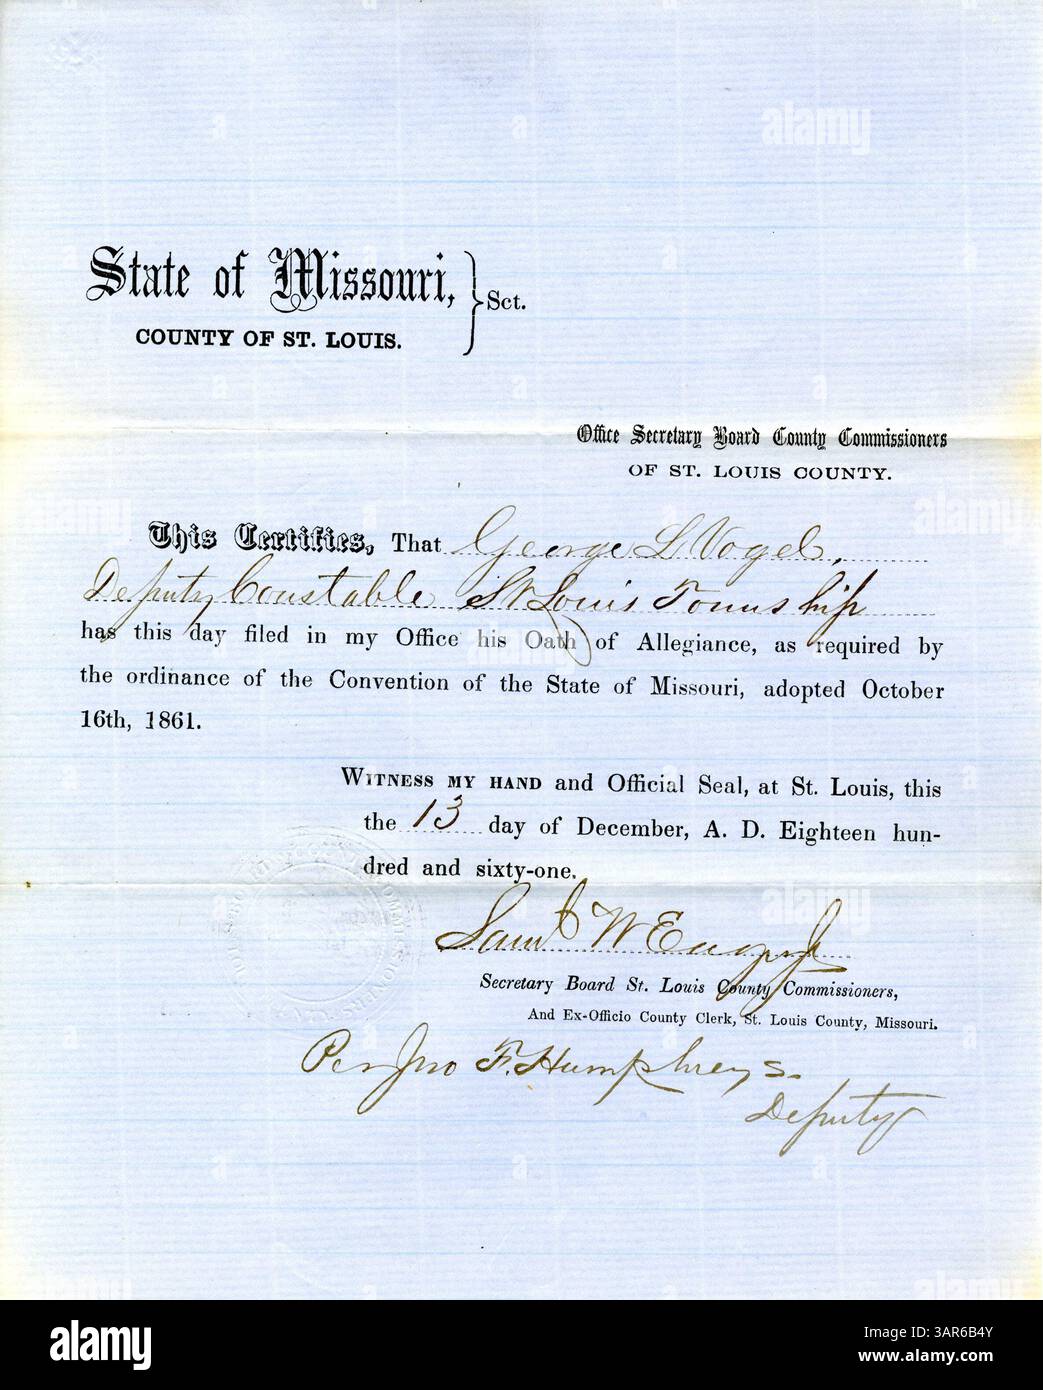 State of Missouri, } Sct.
COUNTY OF ST. LOUIS.
Office Secretary Board County Commissioners
OF ST. LOUIS COUNTY.
This Certifies, That George L Vogel,
Deputy Constable St Louis Township
has this day filed in my Office his Oath of Allegiance, as required by
the ordinance of the Convention of the State of Missouri, adopted October
16th, 1861.
WITNESS MY HAND and Official Seal, at St. Louis, this
the 13 day of December, A. D. Eighteen hun-
dred and sixty-one.
Saml W Eager Jr
Secretary Board St. Louis County Commissioners,
And Ex-Officio County Clerk, St. Louis County, Missouri.
Per Jno F. Humphreys.
Deputy
alamy
Image ID: 3AR6B4Y
www.alamy.com